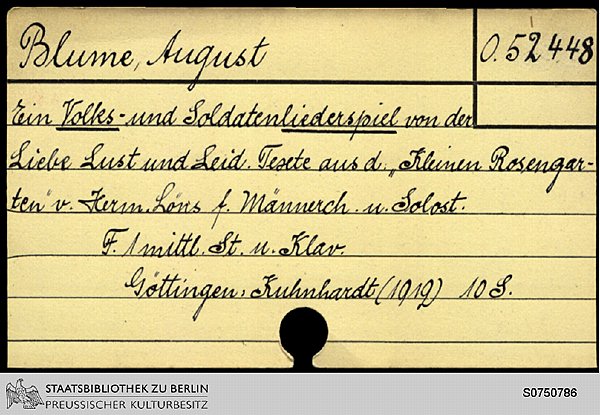 Blume, August
O. 52448
Ein Volks- und Soldatenliederspiel von der
Liebe Lust und Leid. Texte aus d. „Kleinen Rosengar-
ten“ v. Herm. Löns f. Männerch. u. Solost.
F. 1 mittl. St. u. Klav.
Göttingen: Kuhnhardt (1919) 10 S.
STAATSBIBLIOTHEK ZU BERLIN
PREUSSISCHER KULTURBESITZ
S0750786